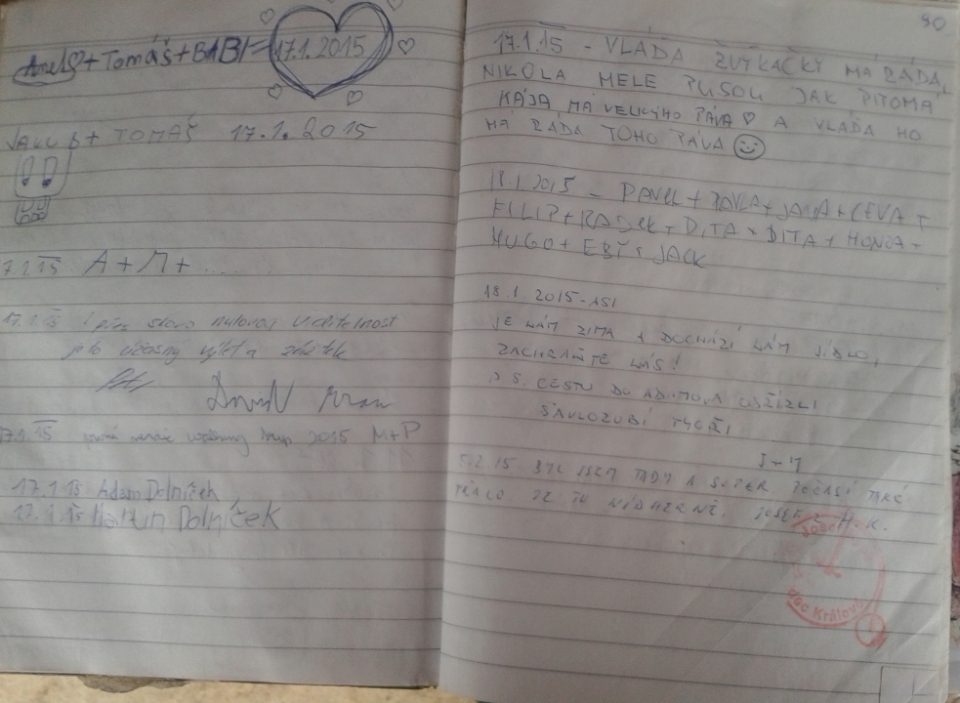 Amel + Tomáš + BABI = 17.1.2015
JAKUB + TOMÁŠ 17.1.2015
17.1.15 A + M + ......
17.1.15 i přes skoro nulovou viditelnost
je to úžasný výlet a zážitek
17.1.15 2015 M+P
17.1.15 Adam Dolníček
17.1.15 Martin Dolníček
90
17.1.15 - VLAĎA ŽVÝKAČKY MÁ RÁDA,
NIKOLA MELE PUSOU JAK PITOMÁ
KÁJA MÁ VELKÝHO PÁVA A VLAĎA HO
MÁ RÁDA TOHO PÁVA
17.1.2015 - PAVEL + PAVLA + JANA + CEVA +
FILIP + RADEK + DITA + DITA + HONZA +
HUGO + EBÍ + JACK
18.1.2015 - ASI
JE NÁM ZIMA A DOCHÁZÍ NÁM JÍDLO,
ZACHRAŇTE NÁS!
P.S. CESTU DO
ŠAVLOZUBÍ TYGŘI
5.2.15 BYL JSEM TADY A SUPER POČASÍ TAKÉ
JE TO NÁDHERNÉ. JOSEF Š H.K.
Josef
Dvůr Králové